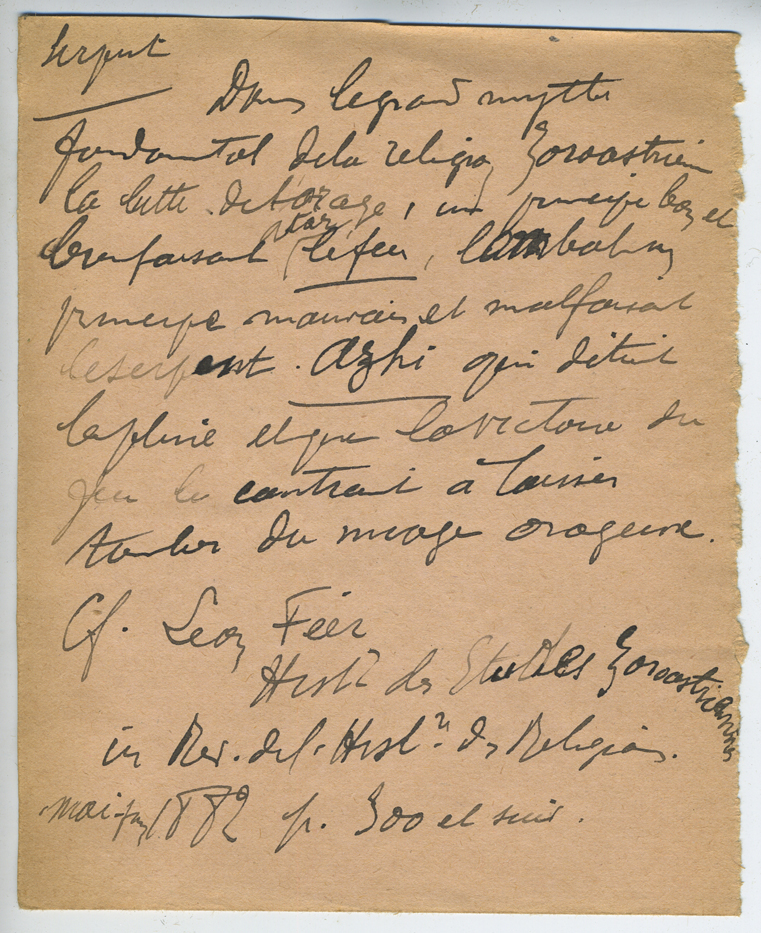 Serpent
Dans le grand mythe
fondamental de la religion Zoroastrienne
la lutte de l'orage, un principe bon et
bienfaisant (Atar) le feu, combat un
principe mauvais et malfaisant
le serpent Azhi qui détient
la pluie et que la victoire du
feu le contraint à laisser
tomber du nuage orageux.
Cf. Léon Feer
Hist^re des Etudes Zoroastriennes
in Rev. de l'Hist^re des Religions.
mai-juin 1882 p. 300 et suiv.